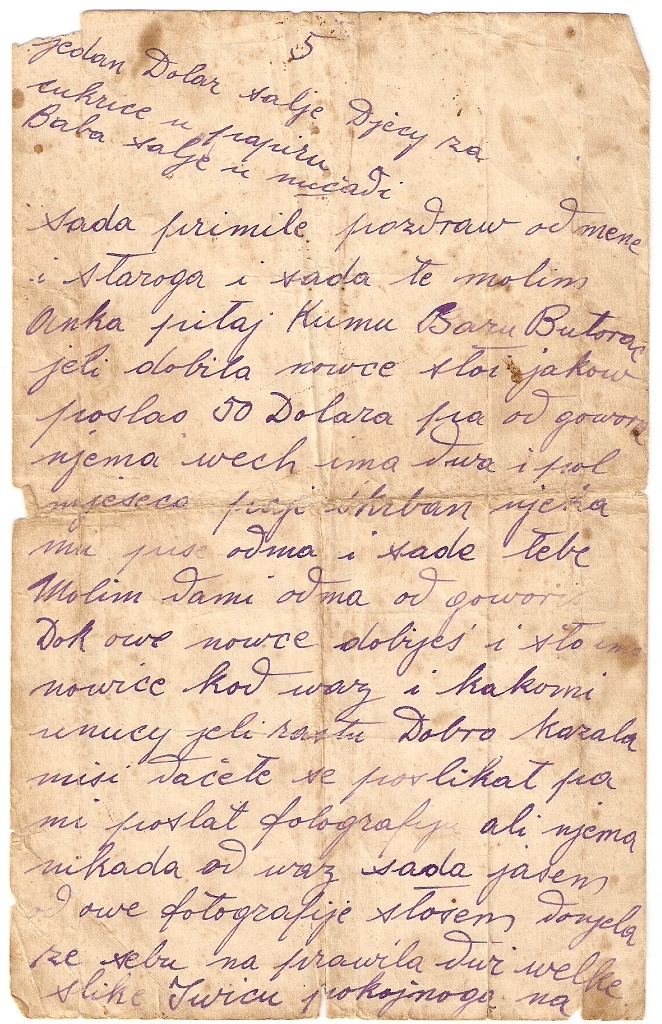 5
jedan Dolar salje Djecy za
cukrice u papiru
Baba salje u nucadi
sada primile pozdraw od mene
i staroga i sada te molim
Anka pitaj Kumu Baru Butorac
jeli dobila nowce stoi jakow
poslao 50 Dolara pa od gowora
njema wech ima dwa i pol
mjeseca pa je skrban njeka
mu pise odma i sade tebe
Molim dami odma od gowori
Dok owe nowce dobijes i sto ima
nowice kod waz i kakomi
unucy jeli rastu Dobro kazala
misi dacete se poslikat pa
mi poslat fotografiju ali njema
nikada od waz sada jasem
od owe fotografije stosem donjela
ze sebu na prawila dwi welke
slike Iwicu pokojnoga na